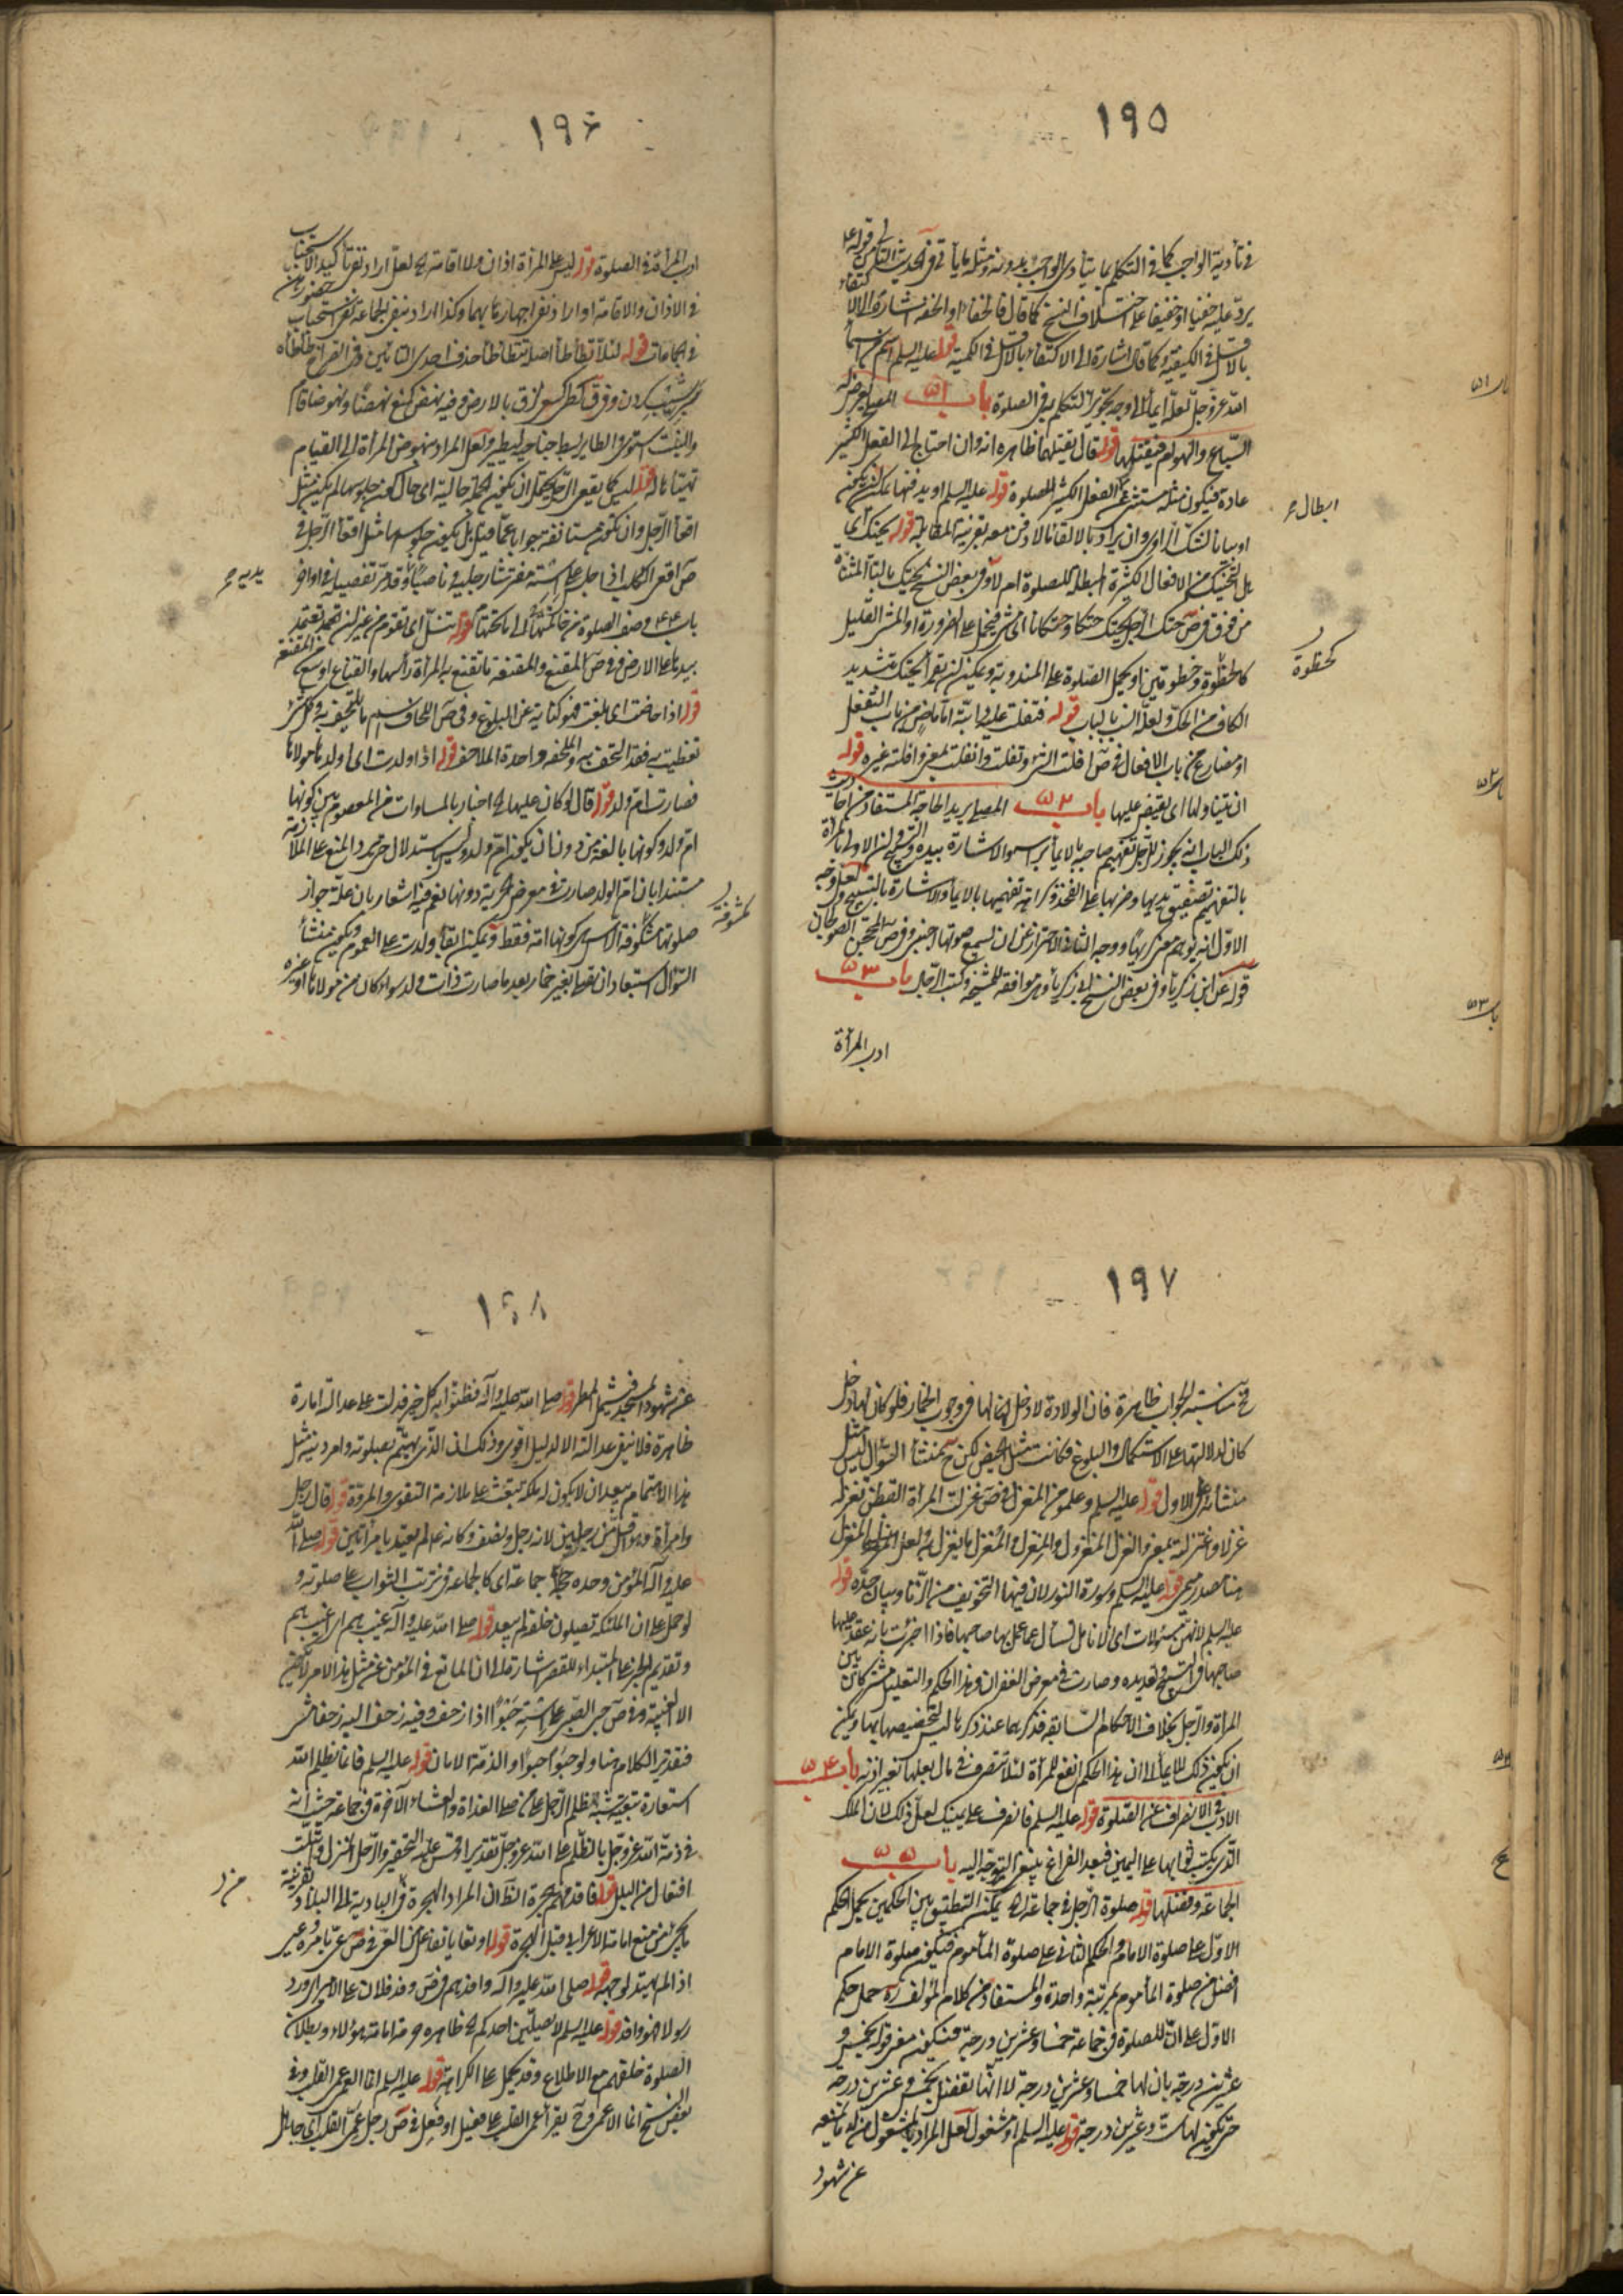 ١٩٥
في تأدية الواجب كما في التكلم بما يتأدى الواجب بدونه ومثله ما يأتي في الحديث الثاني من قوله ع
يرد عليه خفيا او خفيفا على اختلاف النسخ كما قال فالخفاء او الخفة اشارة الى الاكتفاء
بالاقل في الكيفية وكما قال اشارة الى الاكتفاء بالاقل في الكمية قوله عليه السلم اسم من اسماء
الله عز وجل لعله ايماء الى وجه تجويز التكلم به في الصلوة باب ٥١ المصلي يعرض له
السباع والهوام فيقتلها قوله قال يقتلهما ظاهره انه وان احتاج الى الفعل الكثير
عادة فيكون مثله مستثنى من الفعل الكثير للصلوة قوله عليه السلم او يدفنها يمكن ان يكون
ابطال
او بيانا لشك الراوي وان يراد بالالقاء الالادفن معه بقرينة المقابلة قوله يحتك اي
هل التحتك من الافعال الكثيرة المبطلة للصلوة ام لا وفي بعض النسخ يحتك بالتاء المثناة
من فوق في ص حتك الرجل يحتك حتكا وحتكانا اي مشى فيحمل على الضرورة او المشي القليل
كالخطوة وخطوتين او يحمل الصلوة على المندوبة ويمكن ان يقرأ يحتك بتشديد
كخطوة
الكاف من الحك ولعله انسب بالباب قوله فتفلت عليه دابته اما ماض من باب التفعل
او مضارع من باب الافعال في ص افلت الشيء وتفلت وانفلت بمعنى وافلته غيره قوله
ان يتناولها اي يقبض عليها باب ٥٢ المصلي يريد الحاجة المستفاد من احاديث
ذلك الباب انه يجوز للرجل تفهيم صاحبه بالايماء برأسه والاشارة بيده والتسبيح وان الاولى للمرأة
بالتفهيم تصفيق يديها وضربها على الفخذ وكراهة تفهيمها بالايماء والاشارة بالتسبيح ولعل وجه
الاول انه يوهم معنى كريها ووجه الثاني الاحتراز عن ان يسمع صوتها اجنبي وفي ص المحجن الصولجان
قوله عن ابن زكريا وفي بعض النسخ ابي زكريا وهي موافقة للمشيخة وكتب الرجال باب ٥٣
ادب المرأة
باب ٥١
باب ٥٢
باب ٥٣
١٩٦
ادب المرأة في الصلوة قوله ليس على المرأة اذان ولا اقامة الخ لعل اراد نفي تأكيد الاستحباب
في الاذان والاقامة او اراد نفي اجهارها بهما وكذا اراد بنفي الجماعة نفي استحباب حضورهن
في الجماعات قوله لئلا تطأطأ اصله تتطأطأ حذف احدى التائين وفي القراح طأطأه
سر بشيب كردن وفي ق كطر كسمع لزق بالارض وفيه نهض كمنع نهضا ونهوضا قام
والنبت استوى والطاير بسط جناحيه ليطير ولعل المراد نهوض المرأة الى القيام
تهيئها له قوله ليس كما يقعي الرجل يحتمل ان يكون الجملة حالية اي حال كون جلوسها لم يكن مثل
اقعاء الرجل وان يكون مستانفة جوابا عما قيل بل يكون جلوسها مثل اقعاء الرجل في
ص اقعى الكلب اذا جلس على استه مفترشا رجليه وناصبا وقد مر تفصيله في اواخر
يديه ح
باب ٤٤ وصف الصلوة من فاتحتها الى خاتمتها قوله تنسل اي تقوم من غير ان تعتمد
بيديها على الارض وفي ص المقنع والمقنعة ما تقنع به المرأة رأسها والقناع اوسع من المقنعة
قوله اذا حاضت اي بلغت فهو كناية عن البلوغ وفي ص اللحاف اسم ما يلتحف به وكل شيء
تغطيت به فقد التحفت به والملحفة واحدة الملاحف قوله اذا ولدت اي اولدها مولاها
فصارت ام ولد قوله قال لو كان عليها الخ اخبار بالمساوات من المعصوم بين كونها
ام ولد وكونها بالغة من دون ان يكون ام ولد وليس استدلال حتى يرد المنع على الملازمة
مستندا بان ام الولد صارت في معرض الحرية دونها نعم فيه اشعار بان علة جواز
صلوتها مكشوفة الرأس كونها امة فقط ويمكن ابقاء ولدت على العموم ويكون منشأ
مكشوفة
السؤال استبعاد ان يغطيها بغير خمار بعد ما صارت ذات ولد سواء كان من مولاها او غيره
١٩٧
مناسبة الجواب ظاهرة فان الولادة لا دخل لها في وجوب الخمار فلو كان لها دخل
كان لدلالتها على الاستكمال والبلوغ فكانت مثل الحيض لكن منشأ السؤال ليس مثل
منشائه على الاول قوله عليه السلم وعلموهن المغزل في ص غزلت المرأة القطن تغزله
غزلا واغتزلته بمعنى والغزل المغزول والمِغزل والمُغزل ما يغزل به ولعل المراد بالمغزل
هنا مصدر ميمي قوله عليه السلم وسورة النور لان فيها التخويف من الزنا وبيان حده قوله
عليه السلم لانهن مسئولات اي الانامل تسأل عما عمل بها صاحبها فاذا اخبرت بانه عقد عليها
صاحبها في التسبيح وتعديده وصارت في معرض الغفران وهذا الحكم والتعليل مشتركان بين
المرأة والرجل بخلاف الاحكام السابقة فذكرهما عند ذكرها ليس لتخصيصها بهما ويمكن
ان يكون ذلك للايماء الى ان هذا الحكم انفع للمرأة لئلا تتصرف في مال بعلها بغير اذنه باب ٥٤
الادب في الانصراف عن الصلوة قوله عليه السلم فانصرف على يمينك لعل ذلك لان الملك
الذي يكتب ثوابها على اليمين فبعد الفراغ ينبغي التوجه اليه باب ٥٥
الجماعة وفضلها قوله صلوة الرجل في جماعة الخ يمكن التطبيق بين الحكمين بحمل الحكم
الاول على صلوة الامام والحكم الثاني على صلوة المأموم فيكون صلوة الامام
افضل من صلوة المأموم بمرتبة واحدة والمستفاد من كلام المؤلف ره حمل حكم
الاول على ان للصلوة في جماعة خمسا وعشرين درجة فيكون معنى قوله بخمس و
عشرين درجة بان لها خمسا وعشرين درجة لا انها تفضل بخمس وعشرين درجة
حتى يكون لها ست وعشرين درجة قوله عليه السلم او مشغول لعل المراد بالمشغول من له ما يمنعه
عن شهود
١٩٨
عن شهود المسجد فيشمل المطر قوله صلى الله عليه وآله فظنوا به كل خير فدلت على عدالته امارة
ظاهرة فلا ينفى عدالته الا لدليل اقوى وذلك ان الذي يهتم بصلوته وامر دينه مثل
هذا الاهتمام بعيد ان لا يكون له ملكة تبعث على ملازمة التقوى والمروة قوله قال رجل
وامرأة وهو اقل من رجلين لانه رجل ونصف وكانه ع لم يعتد بامرأتين قوله صلى الله
عليه وآله المؤمن وحده حجة جماعة اي كالجماعة في ترتب الثواب على صلوته و
لو حمل على ان الملئكة تصلون خلفه لم يبعد قوله صلى الله عليه وآله غيب بهم ام غيب بهم
وتقديم الخبر على المبتداء للقصر اشارة الى ان المانع في المؤمن عن مثل هذا الامر لا يكون
الا الغيبة وفي ص حبى الصبي على استه حبوا اذا زحف وفيه زحف اليه زحفا مشى
فتقدير الكلام هنا ولو حبوا حبوا والذمة الامان قوله عليه السلم فانما يظلم الله
استعارة تبعية شبه تظلم الرجل على من صلى الغداة والعشاء الآخرة في جماعة حيث انه
في ذمة الله عز وجل بالتظلم على الله عز وجل تقديرا وقس عليه التحقير والرحل المنزل وابتلت
افتعال من البلل قوله فاقدمهم هجرة الظاهر ان المراد الهجرة من البادية الى البلاد بقرينة
ما يجيء من منع امامة الاعرابي قبل الهجرة قوله او تعايا تفاعل من العي في ص عي بامره وعيي
اذا لم يهتد لوجهه قوله صلى الله عليه وآله وافدهم في ص وفد فلان على الامير اي ورد
رسولا فهو وافد قوله عليه السلم لا يصلين احدكم الخ ظاهره حرمة امامة هؤلاء وبطلان
الصلوة خلفهم مع الاطلاع وقد يحمل على الكراهة قوله عليه السلم انما العمى عمى القلب وفي
بعض النسخ انما الاعمى وح يقرأ عمى القلب على فعيل او فعل في ص رجل عمى القلب اي جاهل